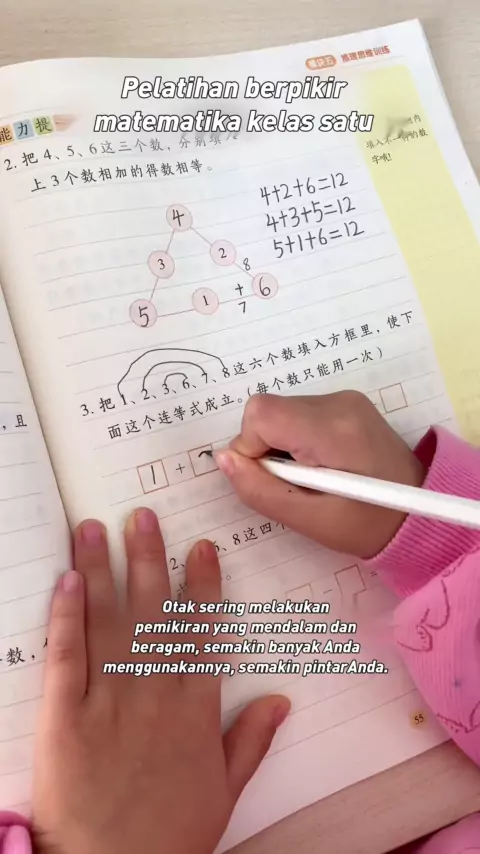 模块五 思维训练
Pelatihan berpikir
matematika kelas satu
能力提
2. 把 4、5、6这三个数，分别填
内
上3个数相加的得数相等。
填入不一样的数
字哦！
4+2+6=12
4+3+5=12
5+1+6=12
4
3
2
8
5
1
+
6
7
3. 把 1、2、3、6、7、8这六个数填入方框里，使下
面这个连等式成立。（每个数只能用一次）
，且
1 +
2、
5、8这四个
Otak sering melakukan
pemikiran yang mendalam dan
beragam, semakin banyak Anda
menggunakannya, semakin pintarAnda.
数，
55